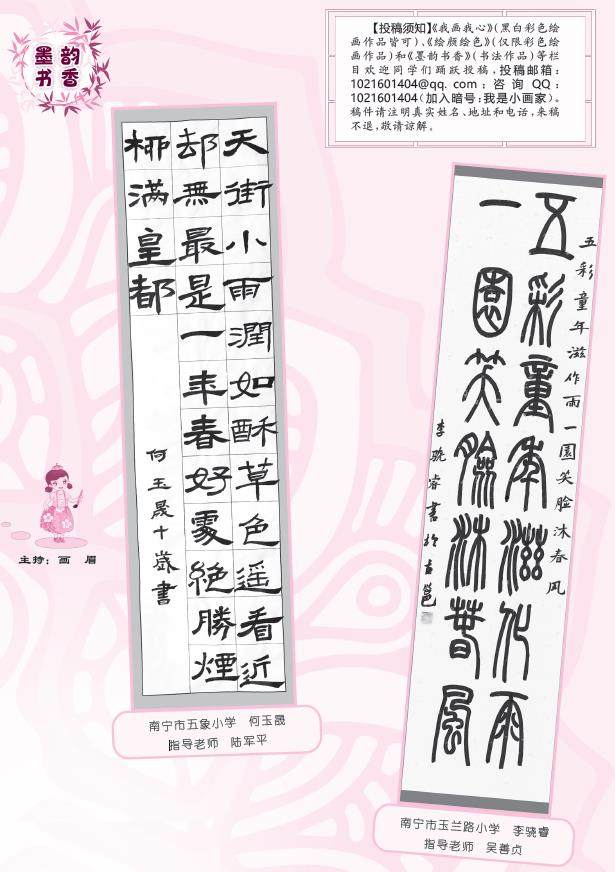 墨韵
书香
【投稿须知】《我画我心》(黑白彩色绘
画作品皆可)、《绘颜绘色》(仅限彩色绘
画作品)和《墨韵书香》(书法作品)等栏
目欢迎同学们踊跃投稿,投稿邮箱:
1021601404@qq.com;咨询QQ:
1021601404(加入暗号:我是小画家)。
稿件请注明真实姓名、地址和电话,来稿
不退,敬请谅解。
天街小雨潤如酥草色遥看近
却無最是一年春好處絶勝煙
柳滿皇都
何玉晟十歲書
南宁市五象小学 何玉晟
指导老师 陆军平
五彩童年滋作雨一園笑脸沐春风
五彩童年滋化雨
一園笑臉沐春風
李骁睿書於古邕
南宁市玉兰路小学 李骁睿
指导老师 吴善贞
主持:画 眉